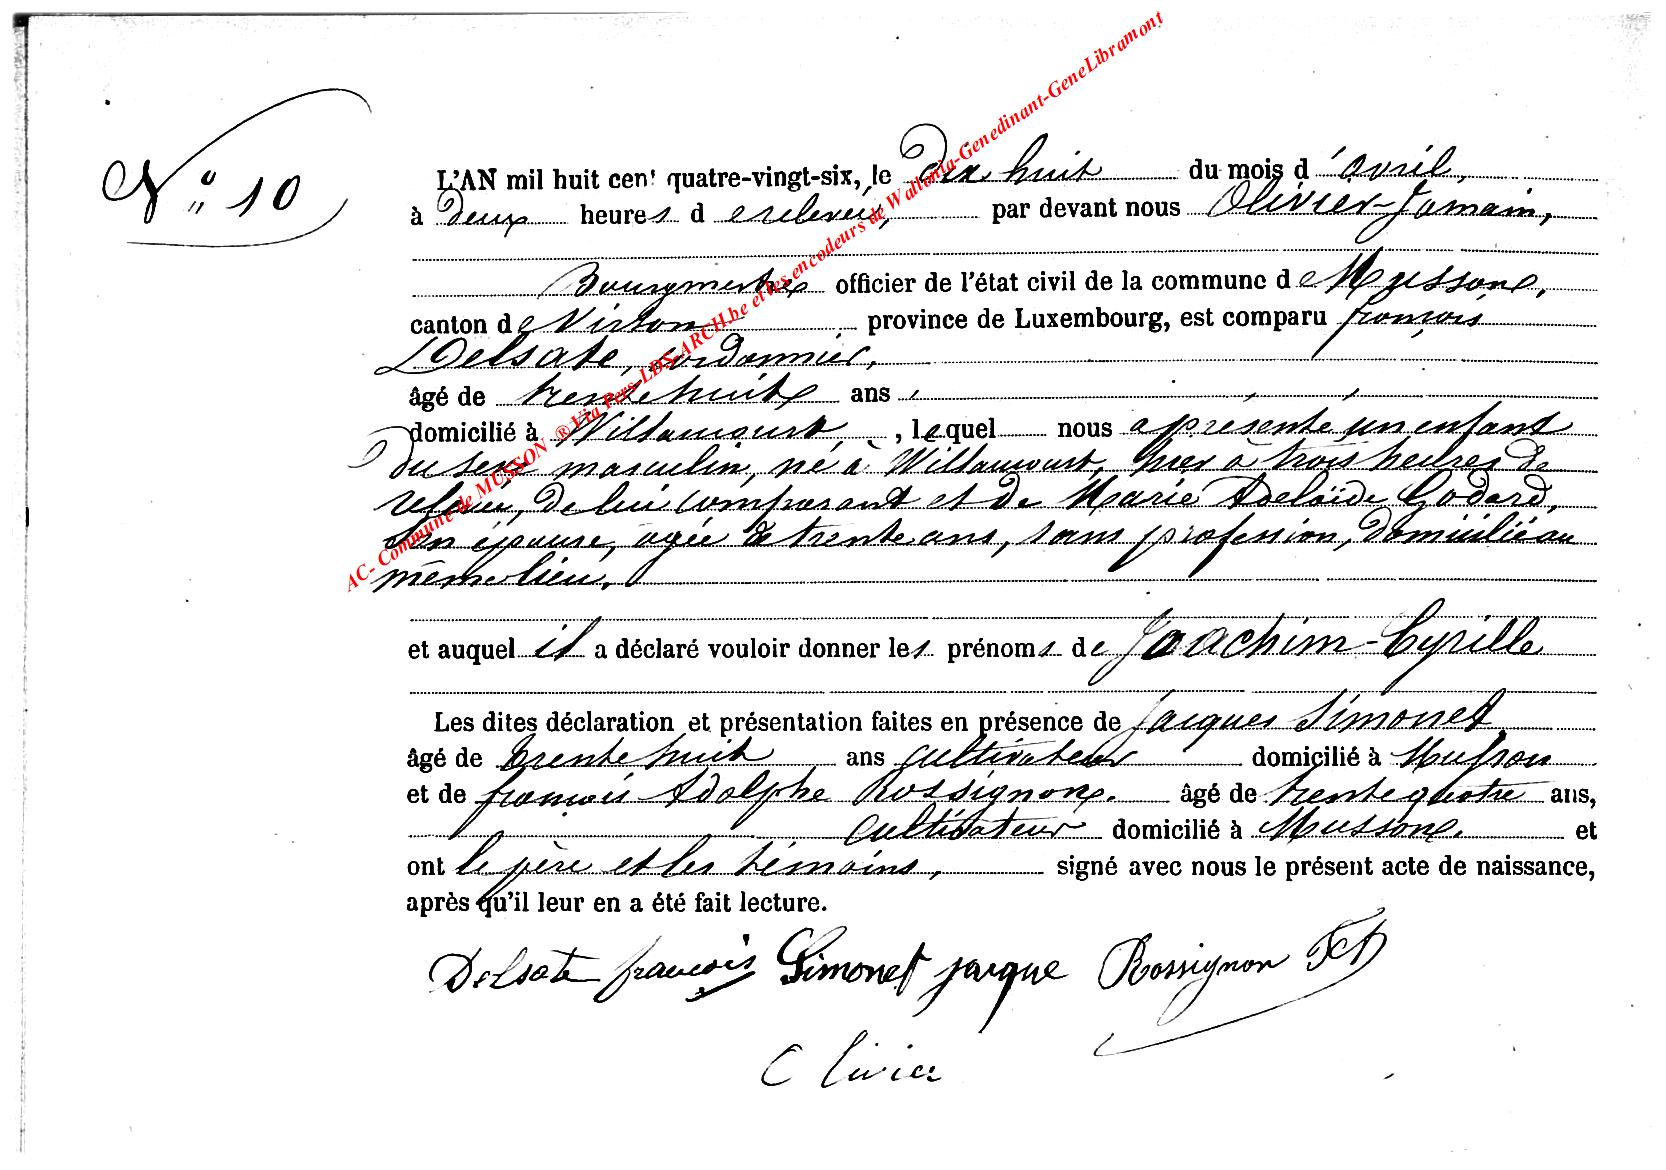 N° 10
L'AN mil huit cent quatre-vingt-six, le Dix huit du mois d'avril,
à deux heures de relevée, par devant nous Olivier-Jamain,
Bourgmestre officier de l'état civil de la commune de Musson,
canton de Virton province de Luxembourg, est comparu françois
Delsate, cordonnier,
âgé de trente huit ans
domicilié à Willancourt, lequel nous a présenté un enfant
du sexe masculin, né à Willancourt, hier à trois heures de
relevée, de lui comparant et de Marie Adelaïde Godard,
son épouse, agée de trente ans, sans profession, domiciliée au
même lieu.
et auquel il a déclaré vouloir donner les prénoms de Joachim-Cyrille
Les dites déclaration et présentation faites en présence de jacques Simonet,
âgé de trente huit ans cultivateur domicilié à Musson
et de françois Adolphe Rossignon. âgé de trente quatre ans,
cultivateur domicilié à Musson. et
ont le père et les témoins, signé avec nous le présent acte de naissance,
après qu'il leur en a été fait lecture.
Delsate françois Simonet jacque Rossignon
Olivier
AC- Commune de MUSSON ® Via Pers-LDS-ARCH.be et les encodeurs de Wallonia-Genedinant-GeneLibramont